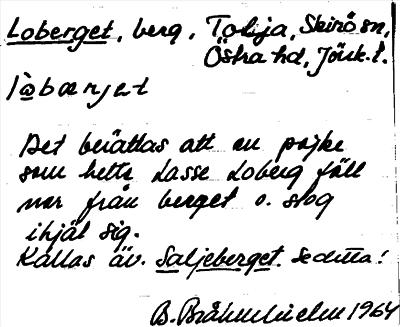 Loberget, berg, Tolja, Skirö sn,
Östra hd, Jönk. l.
Det berättas att en pojke
som hette Lasse Loberg föll
ner från berget o. slog
ihjäl sig.
Kallas äv. Saljeberget. Se detta!
B. 1964